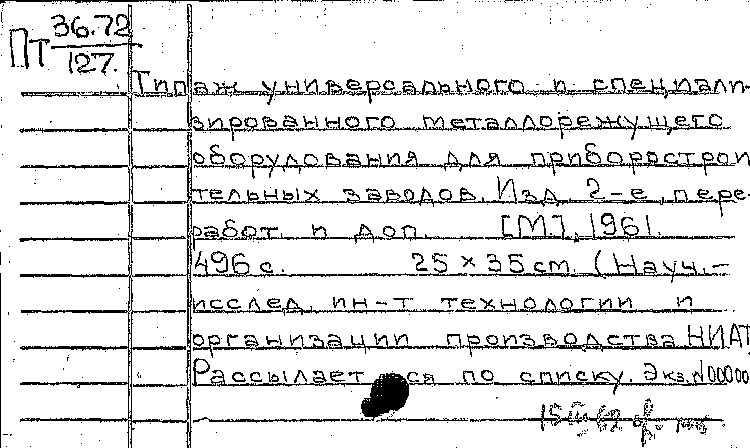 ПТ 36.72
127.
Типаж универсального и специали-
зированного металлорежущего
оборудования для приборострои
тельных заводов. Изд. 2-е, пере-
работ. и доп. [М.], 1961.
496 с. 25 × 35 см. (Науч.-
исслед. ин-т технологии и
организации производства НИАТ
Рассылается по списку. Экз. N 00000
15 IV 62